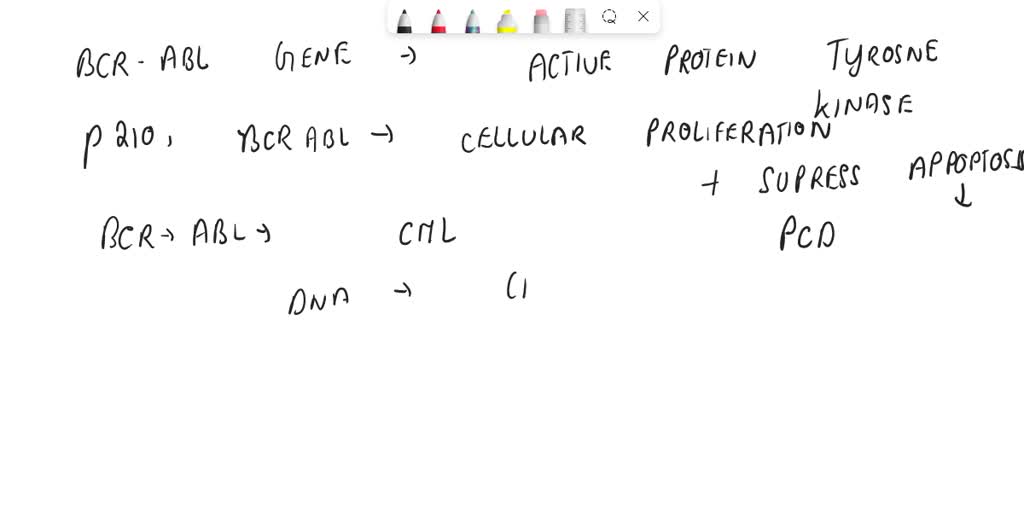 BCR - ABL GENE → ACTIVE PROTEIN TYROSNE
KINASE
P 210, BCR ABL → CELLULAR PROLIFERATION
+ SUPRESS APPOPTOSIS
↓
BCR → ABL → CML PCD
DNA → CI